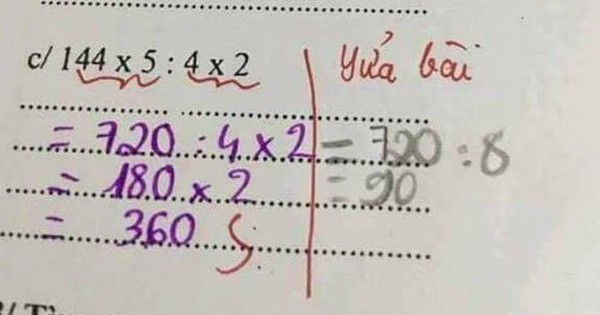 c/ 144 x 5 : 4 x 2
Yửa bài
= 720 : 4 x 2
= 180 x 2
= 360 S
= 720 : 8
= 90